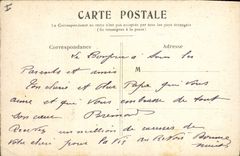 CARTE POSTALE
La Correspondance au recto n'est pas acceptée par tous les pays étrangers
(Se renseigner à la poste)
Correspondance
Adresse
Le Bonjour à tous les
Parents et amis
M
Ton chere et cher Papa qui vous
aime et qui vous embrasse de tout
son cœur
Recevez un million de
votre cher pour la vie au Revoir Bonne
nuit